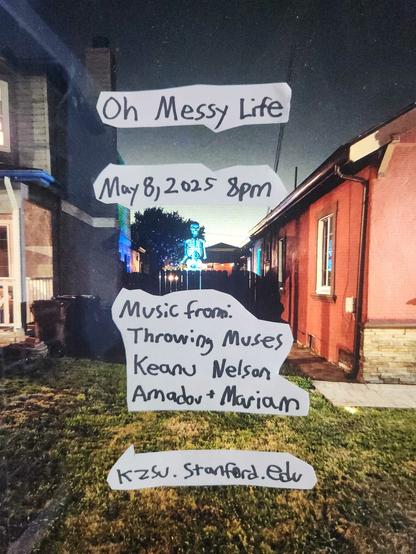 Oh Messy Life
May 8, 2025 8pm
Music from:
Throwing Muses
Keanu Nelson
Amadou + Mariam
kzsu.stanford.edu